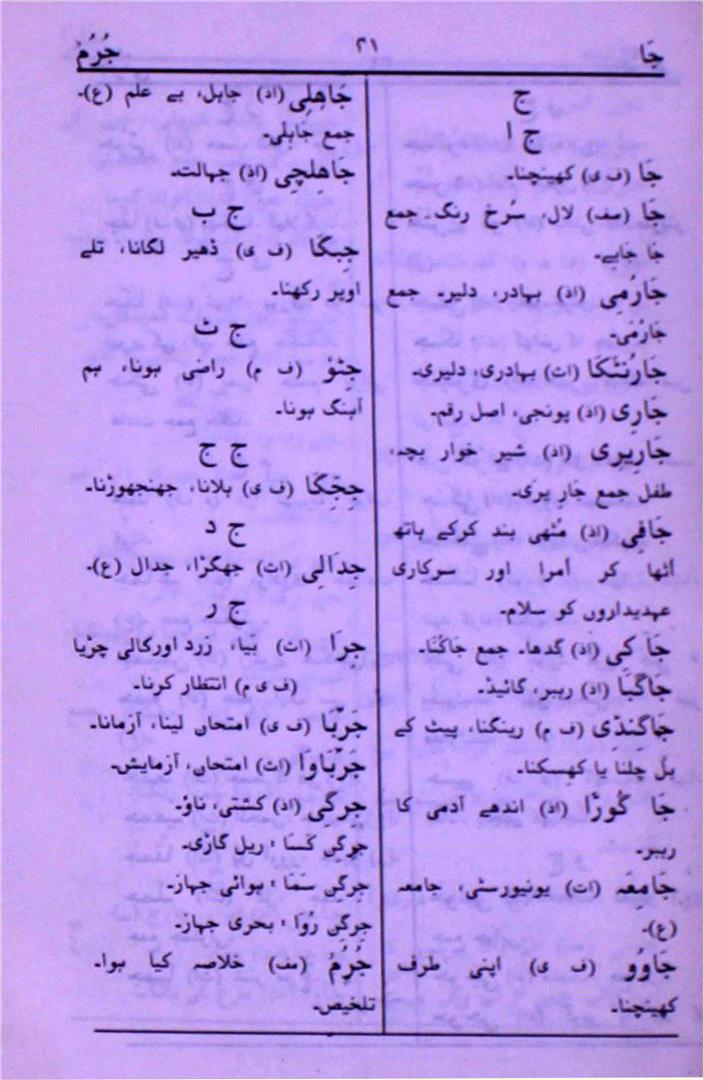 جَا ۲۱ جُرُمْ
ج
ج ا
جَا (ف ی) کھینچنا۔
جَا (صف) لال، سُرخ رنگ۔ جمع
جَا جَاہے۔
جَارُمِی (اذ) بہادر، دلیر۔ جمع
جَارُمَی۔
جَارُنتَکَا (اث) بہادری، دلیری۔
جَارِی (اذ) پونجی، اصل رقم۔
جَارِیرِی (اذ) شیر خوار بچہ،
طفل جمع جَار یرَی۔
جَافِی (اذ) مُٹھی بند کرکے ہاتھ
اُٹھا کر اُمرا اور سرکاری
عہدیداروں کو سلام۔
جَا کِی (اذ) گدھا۔ جمع جَاکُنَا۔
جَاگبَا (اذ) رہبر، گائیڈ۔
جَاکَنْدِی (ف م) رینگنا، پیٹ کے
بل چلنا یا کھِسکنا۔
جَا گُورْا (اذ) اندھے آدمی کا
رہبر۔
جَامِعَہ (اث) یونیورسٹی، جامعہ
(ع)۔
جَاوُو (ف ی) اپنی طرف
کھینچنا۔
جَاهِلِی (اذ) جاہل، بے علم (ع)۔
جمع جَاہلَی۔
جَاهِلچِی (اذ) جہالت۔
ج ب
جِبگَا (ف ی) ڈھیر لگانا، تلے
اوپر رکھنا۔
ج ت
جِتوْ (ف م) راضی ہونا، ہم
آہنگ ہونا۔
ج ج
جِجِّگا (ف ی) ہلانا، جھنجھوڑنا۔
ج د
جِدَالِی (اث) جھگڑا، جدال (ع)۔
ج ر
جِرَا (اث) بیا، زرد اور کالی چڑیا
(ف ی م) انتظار کرنا۔
جَرّبَا (ف ی) امتحان لینا، آزمانا۔
جَرّبَاوَا (اث) امتحان، آزمایش۔
جِرگِی (اذ) کشتی، ناؤ۔
جِرگِن کَسَا : ریل گاڑی۔
جِرگِن سَمَا : ہوائی جہاز۔
جِرگِن رُوَا : بحری جہاز۔
جُرُمْ (صف) خلاصہ کیا ہوا۔
تلخیص۔